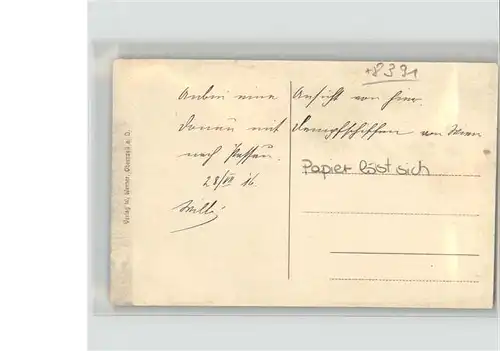 +8391
Anbei eine Ansicht von hier.
Donau mit Dampfschiffen von Wien
nach Passau.
28/VII 16.
Willi
Papier löst sich
Verlag W. Werner, Obernzell a. D.